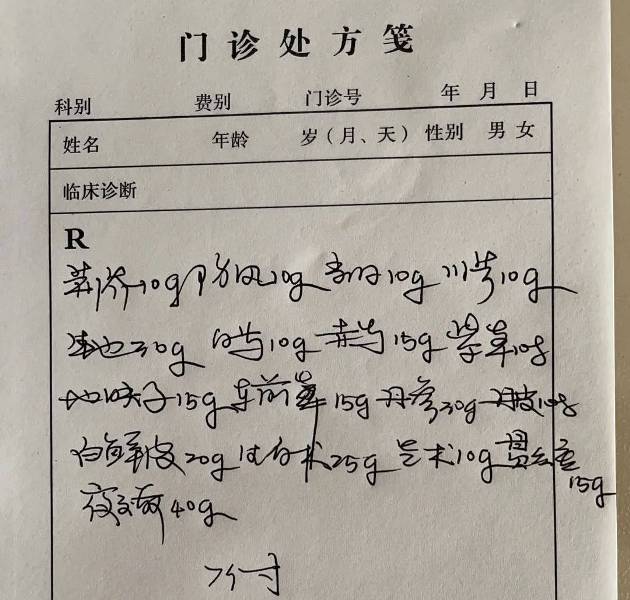 门诊处方笺
科别 费别 门诊号 年 月 日
姓名 年龄 岁(月、天) 性别 男 女
临床诊断
R
荆芥10g 防风10g 当归10g 川芎10g
生地30g 白芍10g 赤芍15g 紫草10g
地肤子15g 车前草15g 丹参30g 丹皮10g
白鲜皮20g 生白术25g 苍术10g 15g
夜交藤40g
7付